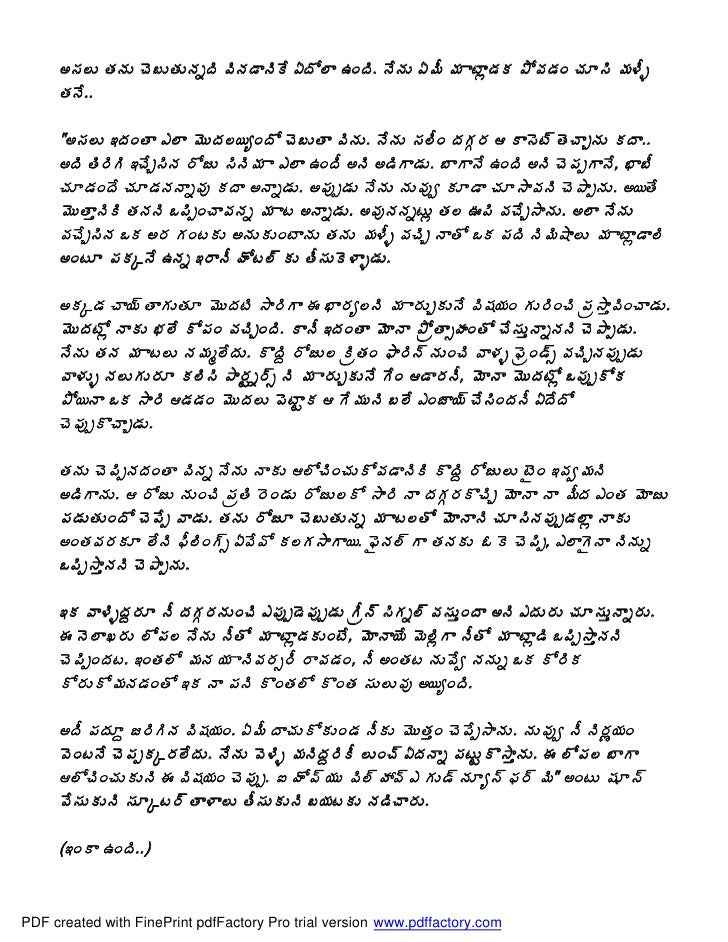 అసలు తను చెబుతున్నది వినడానికే ఏదోలా ఉంది. నేను ఏమీ మాట్లాడక పోవడం చూసి మళ్ళీ
తనే..
"అసలు ఇదంతా ఎలా మొదలయ్యిందో చెబుతా విను. నేను సలీం దగ్గర ఆ కాసెట్ తెచ్చాను కదా..
అది తిరిగి ఇచ్చేసిన రోజు సినిమా ఎలా ఉందీ అని అడిగాడు. బాగానే ఉంది అని చెప్పగానే, భాబీ
చూడందే చూడనన్నావు కదా అన్నాడు. అప్పుడు నేను నువ్వు కూడా చూసావని చెప్పాను. అయితే
మొత్తానికి తనని ఒప్పించావన్న మాట అన్నాడు. అవునన్నట్లు తల ఊపి వచ్చేసాను. అలా నేను
వచ్చేసిన ఒక అర గంటకు అనుకుంటాను తను మళ్ళీ వచ్చి నాతో ఒక పది నిమిషాలు మాట్లాడాలి
అంటూ పక్కనే ఉన్న ఇరానీ హోటల్ కు తీసుకెళ్ళాడు.
అక్కడ చాయ్ తాగుతూ మొదటి సారిగా ఈ భార్యలని మార్చుకునే విషయం గురించి ప్రస్తావించాడు.
మొదట్లో నాకు భలే కోపం వచ్చింది. కానీ ఇదంతా మోనా ప్రోత్సాహంతో చేస్తున్నానని చెప్పాడు.
నేను తన మాటలు నమ్మలేదు. కొద్ది రోజుల క్రితం ఫారిన్ నుంచి వాళ్ళ ఫ్రెండ్స్ వచ్చినప్పుడు
వాళ్ళు నలుగురూ కలిసి పార్ట్నర్స్ ని మార్చుకునే గేం ఆడారనీ, మోనా మొదట్లో ఒప్పుకోక
పోయినా ఒక సారి ఆడడం మొదలు పెట్టాక ఆ గేముని బలే ఎంజాయ్ చేసిందనీ ఏదేదో
చెప్పుకొచ్చాడు.
తను చెప్పినదంతా విన్న నేను నాకు ఆలోచించుకోవడానికి కొద్ది రోజులు టైం ఇవ్వమని
అడిగాను. ఆ రోజు నుంచి ప్రతి రెండు రోజులకో సారి నా దగ్గరకొచ్చి మోనా నా మీద ఎంత మోజు
పడుతుందో చెప్పే వాడు. తను రోజూ చెబుతున్న మాటలతో మోనాని చూసినప్పుడల్లా నాకు
అంతవరకూ లేని ఫీలింగ్స్ ఏవేవో కలగసాగాయి. ఫైనల్ గా తనకు ఓ కె చెప్పి, ఎలాగైనా నిన్ను
ఒప్పిస్తానని చెప్పాను.
ఇక వాళ్ళిద్దరూ నీ దగ్గరనుంచి ఎప్పుడెప్పుడు గ్రీన్ సిగ్నల్ వస్తుందా అని ఎదురు చూస్తున్నారు.
ఈ నెలాఖరు లోపల నేను నీతో మాట్లాడకుంటే, మోనాయే మెల్లిగా నీతో మాట్లాడి ఒప్పిస్తానని
చెప్పిందట. ఇంతలో మన యానివర్సరీ రావడం, నీ అంతట నువ్వే నన్ను ఒక కోరిక
కోరుకోమనడంతో ఇక నా పని కొంతలో కొంత సులువు అయ్యింది.
అదీ పద్దూ జరిగిన విషయం. ఏమీ దాచుకోకుండ నీకు మొత్తం చెప్పేసాను. నువ్వు నీ నిర్ణయం
వెంటనే చెప్పక్కరలేదు. నేను వెళ్ళి మనిద్దరికీ లంచ్ ఏదన్నా పట్టుకొస్తాను. ఈ లోపల బాగా
ఆలోచించుకుని ఈ విషయం చెప్పు. ఐ హోప్ యు విల్ హావ్ ఎ గుడ్ న్యూస్ ఫర్ మి" అంటు షూస్
వేసుకుని స్కూటర్ తాళాలు తీసుకుని బయటకు నడిచారు.
(ఇంకా ఉంది..)
PDF created with FinePrint pdfFactory Pro trial version www.pdffactory.com